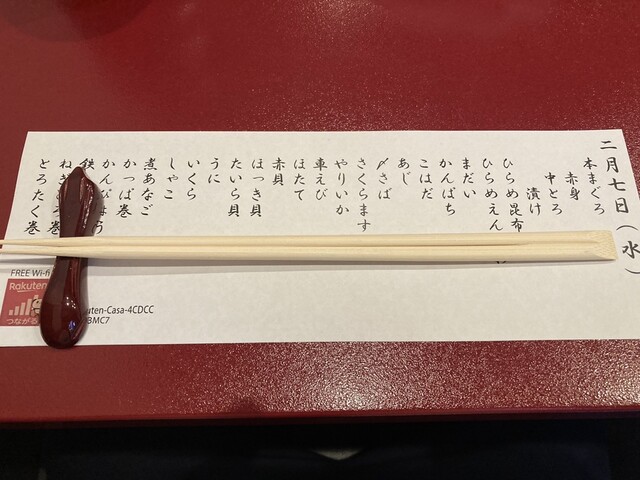 二月七日(水)
本まぐろ
赤身
中とろ
漬け
ひらめ昆布
ひらめえん
まだい
かんぱち
こはだ
あじ
〆さば
さくらます
やりいか
車えび
ほたて
赤貝
ほっき貝
たいら貝
うに
いくら
しゃこ
煮あなご
かっぱ巻
鉄
とろたく巻
FREE Wi-fi
Rakuten
つながる
uten-Casa-4CDCC
BMC7